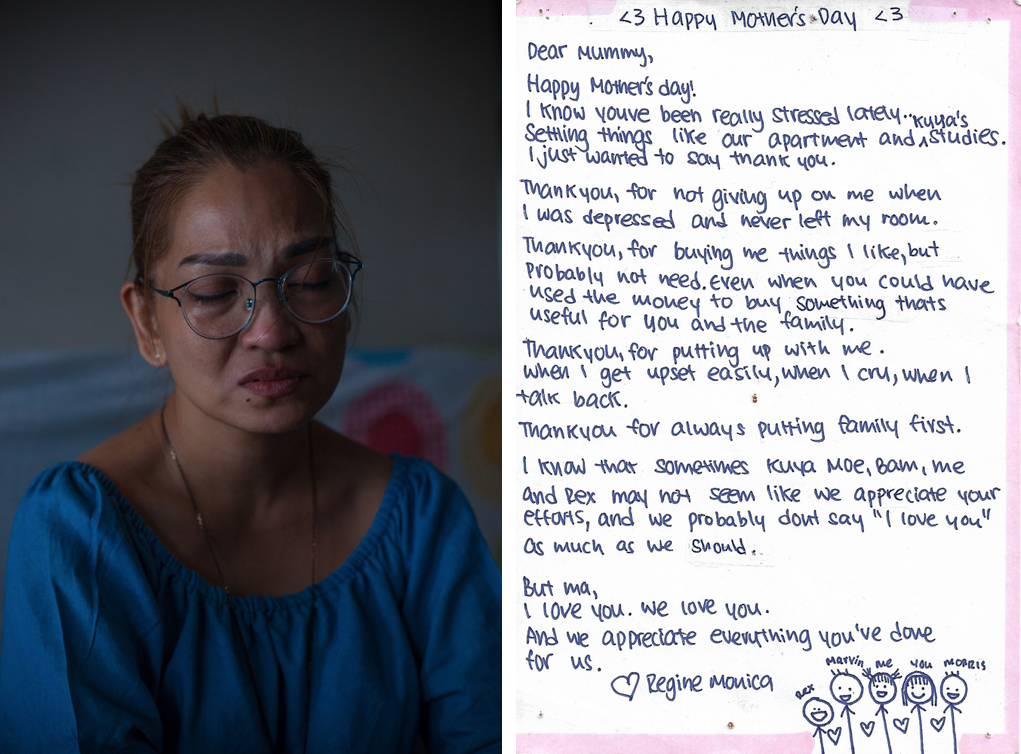 <3 Happy Mother's Day <3
Dear Mummy,
Happy Mother's day!
I know youve been really stressed lately..
Settling things like our apartment and ^kuya's studies.
I just wanted to say thank you.
Thankyou, for not giving up on me when
I was depressed and never left my room.
Thankyou, for buying me things I like, but
probably not need. Even when you could have
used the money to buy something thats
useful for you and the family.
Thankyou, for putting up with me.
When I get upset easily, when I cry, when I
talk back.
Thankyou for always putting family first.
I know that sometimes Kuya Moe, Bam, me
and Rex may not seem like we appreciate your
efforts, and we probably dont say "I love you"
as much as we should.
But ma,
I love you. We love you.
And we appreciate everything you've done
for us.
♡ Regine Monica
Rex Marvin me you MORRIS